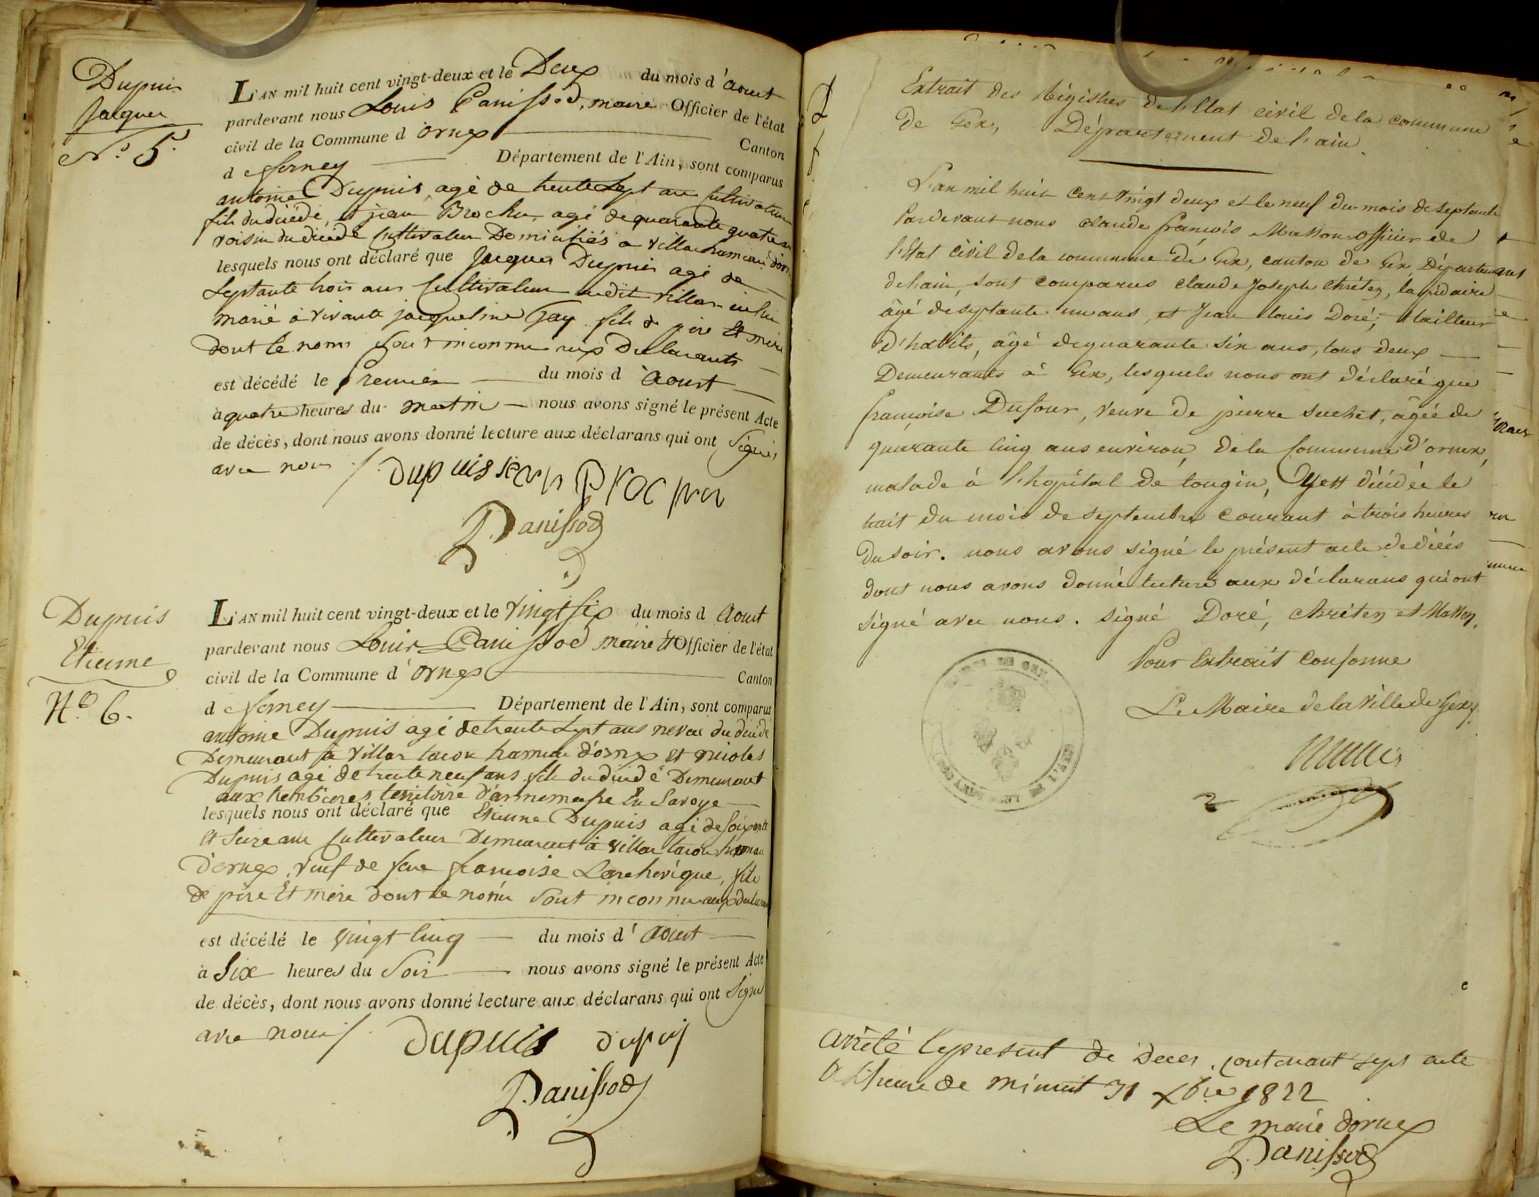 Dupuis
Jacques
N.º 5.
L'AN mil huit cent vingt-deux et le Deux du mois d'aout
pardevant nous Louis Panissod, maire Officier de l'état
civil de la Commune d'ornex Canton
d ferney Département de l'Ain, sont comparus
antoine Dupuis agé de trente sept ans Cultivateur
fils du décédé, et jean Brochu agé de quarante quatre ans
voisin du décédé Cultivateur Domiciliés a villar hameau d'orn
lesquels nous ont déclaré que Jacques Dupuis agé de
Septante trois ans Cultivateur audit villar
marié à vivante jacqueline Gay fils de père et mère
dont le noms sont inconnu aux Declarants
est décédé le premier du mois d'Aoust
à quatre heures du matin nous avons signé le présent Acte
de décès, dont nous avons donné lecture aux déclarans qui ont Signés
avec nous ./.
dupuis jean Brochu
Panissod
Dupuis
Etienne
N.º 6.
L'AN mil huit cent vingt-deux et le vingt six du mois d Aout
pardevant nous Louis Panissod maire Et Officier de l'état
civil de la Commune d'ornex Canton
d ferney Département de l'Ain, sont comparus
antoine Dupuis agé de trente sept ans neveu du décédé
Demeurant à villar tacon hameau d'ornex et nicolas
Dupuis agé de trente neuf ans fils du décédé Demeurant
aux territoire d'annemasse En Savoye
lesquels nous ont déclaré que Etienne Dupuis agé de soixante
et seize ans Cultivateur Demeurant à villar tacon hameau
d'ornex, veuf de feue françoise Larchevêque, fils
de père Et mère dont le noms sont inconnu aux declarans
est décédé le vingt cinq du mois d'Aoust
à Six heures du Soir nous avons signé le présent Acte
de décès, dont nous avons donné lecture aux déclarans qui ont Signé
avec nous ./.
dupuis dupuis
Panissod
Extrait des Régistres de l'Etat civil de la commune
de Gex, Département de l'ain.
L'an mil huit cent vingt deux et le neuf du mois de septembre
Pardevant nous claude françois Masson officier de
l'état civil de la commune de Gex, canton de Gex, Département
de l'ain, sont comparus claude Joseph chréten, lapidaire
âgé de septante un ans, et Jean Louis Doré, tailleur
d'habits, âgé de quarante six ans, tous deux
Demeurants à Gex, lesquels nous ont déclaré que
françoise Dufour, veuve de pierre suchet, âgée de
quarante cinq ans environ, de la Commune d'ornex,
malade à l'hopital de tougin, y est décédée le
huit du mois de septembre courant à trois heures
du soir. nous avons signé le présent acte de décès
dont nous avons donné lecture aux déclarans qui ont
signé avec nous. signé Doré, chréten et Masson.
Pour Extrait conforme
Le Maire de la Ville de Gex,
arrêté le present de Deces, contenant sept acte
a l'heure de minuit 31 Xbre 1822
Le maire dornex
Panissod